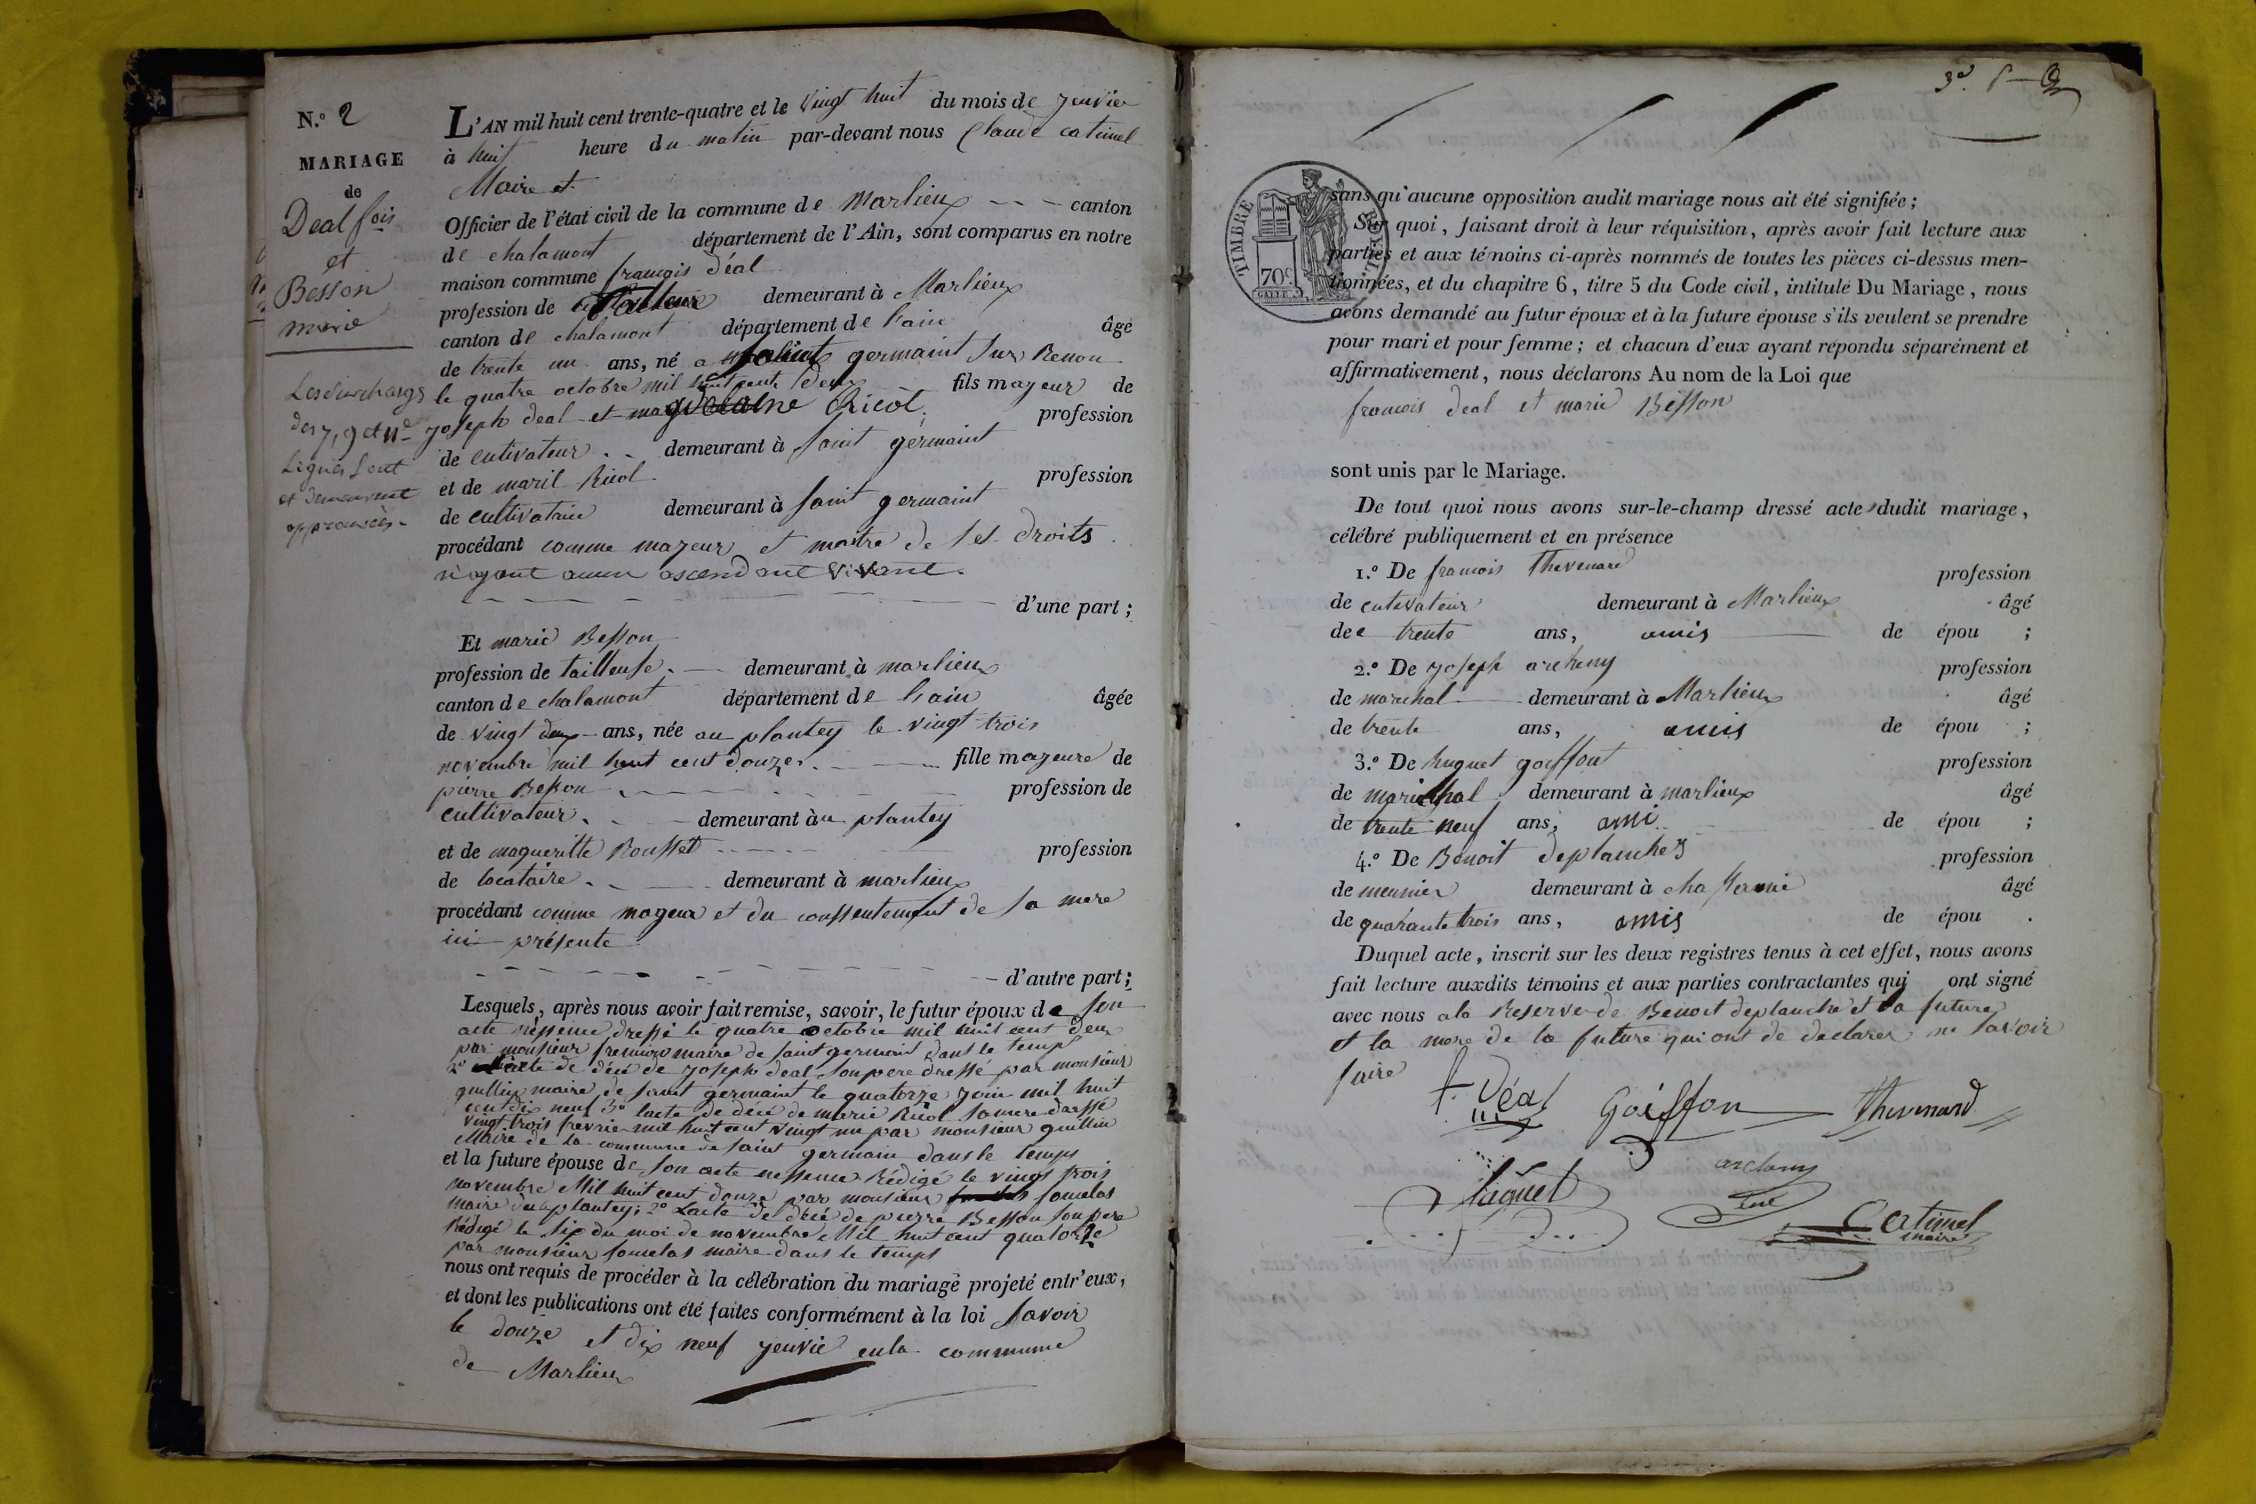 N.º 2
MARIAGE
de
Deal fois
et
Besson
marie
Les surcharges
des 7, 9 et 11e
Lignes sont
et demeurent
approuvées
L'AN mil huit cent trente-quatre et le vingt huit du mois de jenvier
à huit heure du matin par-devant nous Claude catimel
Maire et
Officier de l'état civil de la commune de Marlieux canton
de chalamont département de l'Ain, sont comparus en notre
maison commune françois déal
profession de tailleur demeurant à Marlieux
canton de chalamont département de l'ain âgé
de trente un ans, né a saint germaint sur Renon
le quatre octobre mil huit cent deux fils majeur de
joseph deal et profession
de cutivateur demeurant à saint germaint
et de marie Ricol profession
de cultivatrice demeurant à saint germaint
procédant comme majeur et maitre de ses droits
n'ayant aucun ascendant vivant.
d'une part ;
Et marie Besson
profession de tailleuse demeurant à marlieux
canton de chalamont département de l'ain âgée
de vingt deux ans, née au plantey le vingt trois
novembre mil huit cent douze fille majeure de
pierre Besson profession de
cultivateur demeurant àu plantey
et de magueritte Rousset profession
de locataire demeurant à marlieux
procédant comme mageur et du conssentement de sa mere
ici présente
d'autre part ;
Lesquels, après nous avoir fait remise, savoir, le futur époux de son
acte néssence dressé le quatre octobre mil huit cent deux
par monsieur maire de saint germain dans le temps
2º l'acte de déce de joseph deal son pere dressé par monsieur
guillin maire de saint germaint le quatorze juin mil huit
cent dix neuf 3º lacte de déce de marie Ricol sa mere dressé
vingt trois fevrie mil huit cent vingt un par monsieur guillin
Maire de la commune de saint germain dans le temps
et la future épouse de son acte nessence Rédigé le vingt trois
novembre Mil huit cent douze par monsieur somelas
maire du plantey; 2º Lacte de déce de pierre Besson son pere
Rédigé le six du moi de novembre Mil huit cent quatorze
par monsieur somelas maire dans le temps
nous ont requis de procéder à la célébration du mariage projeté entr'eux,
et dont les publications ont été faites conformément à la loi savoir
le douze et dix neuf jenvié enla commune
de Marlieux
TIMBRE ROYAL
70c
sans qu'aucune opposition audit mariage nous ait été signifiée ;
Sur quoi, faisant droit à leur réquisition, après avoir fait lecture aux
parties et aux témoins ci-après nommés de toutes les pièces ci-dessus men-
tionnées, et du chapitre 6, titre 5 du Code civil, intitulé Du Mariage, nous
avons demandé au futur époux et à la future épouse s'ils veulent se prendre
pour mari et pour femme ; et chacun d'eux ayant répondu séparément et
affirmativement, nous déclarons Au nom de la Loi que
francois deal et marie Besson
sont unis par le Mariage.
De tout quoi nous avons sur-le-champ dressé acte dudit mariage,
célébré publiquement et en présence
1.º De francois thevenard profession
de cutivateur demeurant à Marlieux âgé
de trente ans, amis de épou ;
2.º De joseph archeny profession
de marchal demeurant à Marlieux âgé
de trente ans, amis de épou ;
3.º De huguet goiffont profession
de marichal demeurant à marlieux âgé
de trente neuf ans, ami de épou ;
4.º De Benoit deplanches profession
de meunier demeurant à âgé
de quarante trois ans, amis de épou .
Duquel acte, inscrit sur les deux registres tenus à cet effet, nous avons
fait lecture auxdits témoins et aux parties contractantes qui ont signé
avec nous a la Reserve de Benoit deplanche et la future
et la mere de la future qui ont de declarer ne savoir
faire
f. Déal
Goiffon
thevenard
Catimel
maire